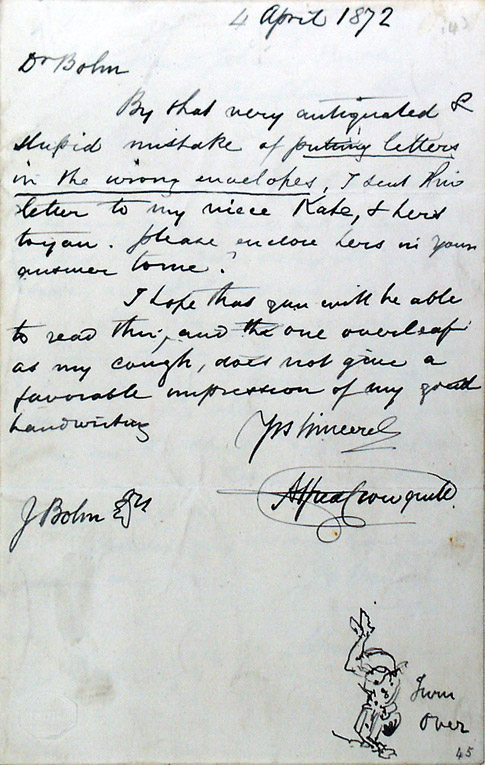 4 April 1872
Dr Bohn
By that very antiquated &
stupid mistake of puting letters
in the wrong envelopes, I sent this
letter to my niece Kate, & hers
to you. Please enclose hers in your
answer to me.
I hope that you will be able
to read this, and the one overleaf
as my cough, does not give a
favorable impression of my good
handwriting
Yrs sincerely
Alfred Crowquill.
J Bohn Esqr
Turn
Over
45